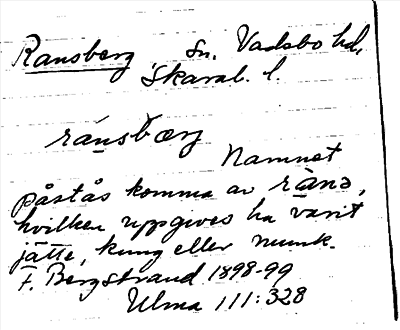 Ransberg sn. Vadsbo hd,
Skarab. l.
ránsbærg
Namnet
påstås komma av ránə,
hvilken uppgives ha varit
jätte, kung eller munk.
F. Bergstrand 1898-99
Ulma 111:328